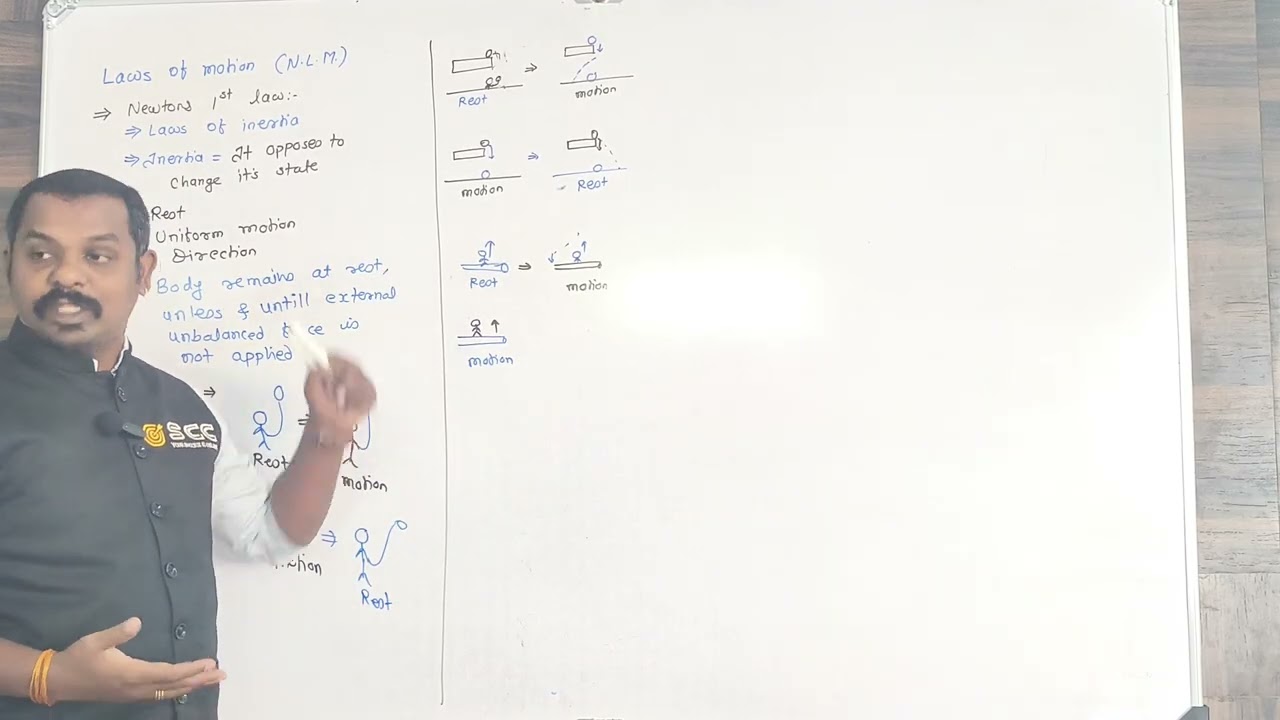 Laws of motion (N.L.M.)
⇒ Newtons 1st law:-
⇒ Laws of inertia
⇒ Inertia = It opposes to
change it's state
Rest
Uniform motion
Direction
Body remains at rest,
unless & untill external
unbalanced ce is
not applied
⇒
Rest
motion
⇒
Rest
⇒
Rest
motion
⇒
motion
Rest
⇒
Rest
motion
motion
SCC